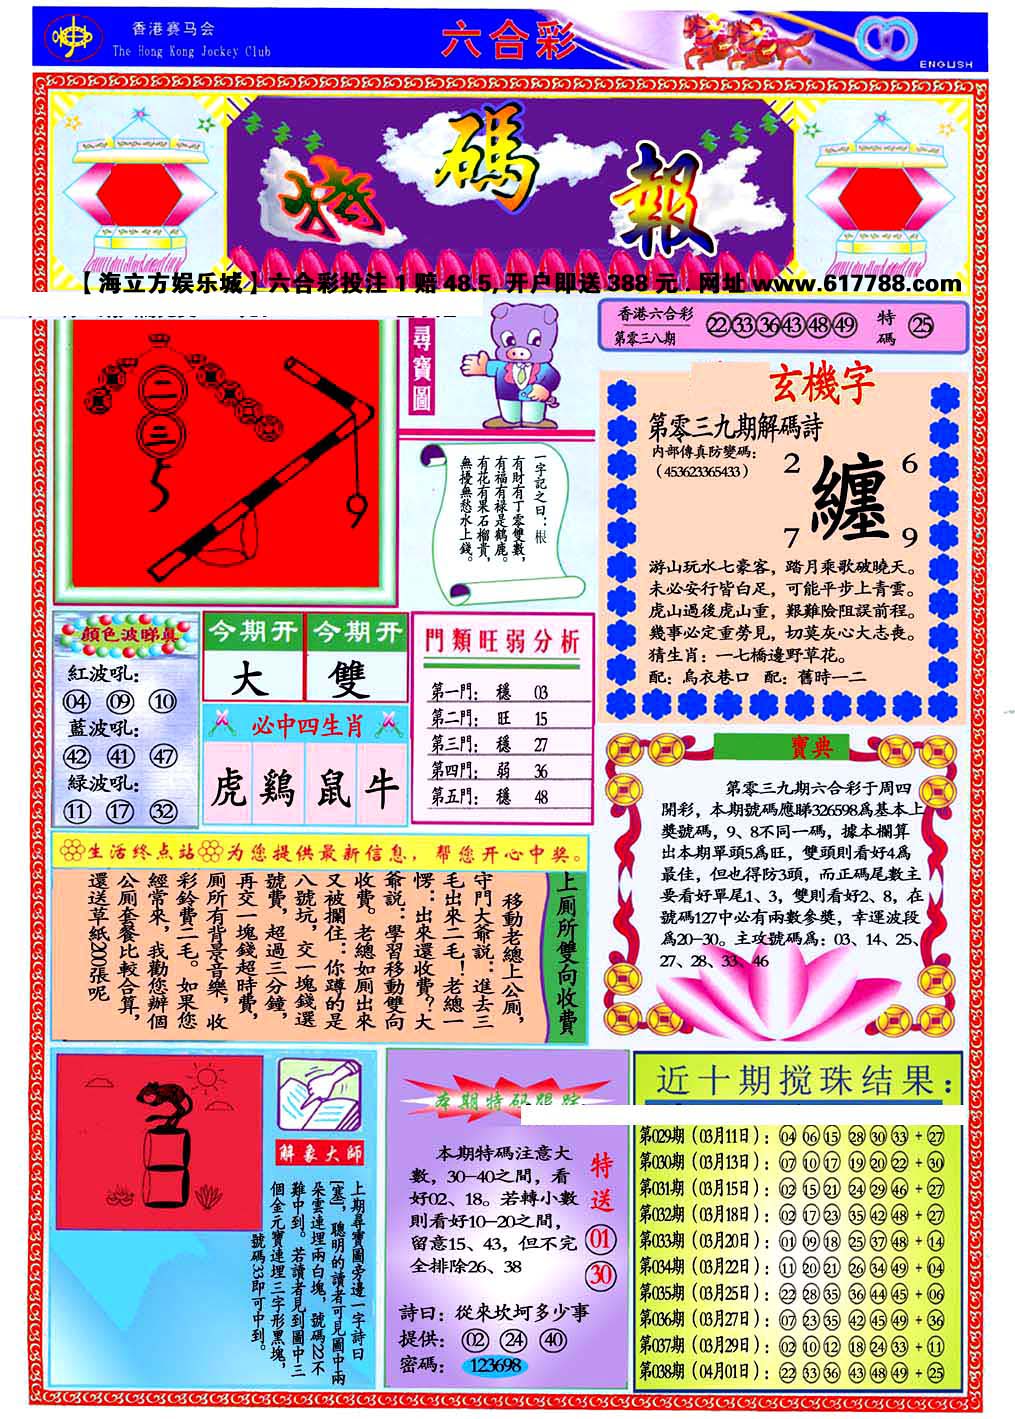 香港赛马会
The Hong Kong Jockey Club
六合彩
ENGLISH
特碼報
【海立方娱乐城】六合彩投注1赔48.5,开户即送388元．网址www.617788.com
二
三
尋寶圖
一字記之曰：根
有財有丁零雙數，
有福有禄是鶴鹿。
有花有果石榴貴，
無擾無愁水上錢。
香港六合彩
第零三八期
22 33 36 43 48 49 特碼 25
玄機字
第零三九期解碼詩
内部傳真防變碼：
（453623365433）
2 6
纏
7 9
游山玩水七豪客，踏月乘歌破曉天。
未必安行皆白足，可能平步上青雲。
虎山過後虎山重，艱難險阻誤前程。
幾事必定重勞見，切莫灰心大志喪。
猜生肖：一七橋邊野草花。
配：烏衣巷口 配：舊時一二
顔色波睇真
紅波吼：
04 09 10
藍波吼：
42 41 47
緑波吼：
11 17 32
今期开 今期开
大 雙
必中四生肖
虎 鷄 鼠 牛
門類旺弱分析
第一門： 穩 03
第二門： 旺 15
第三門： 穩 27
第四門： 弱 36
第五門： 穩 48
寶典
第零三九期六合彩于周四
開彩，本期號碼應睇326598爲基本上
獎號碼，9、8不同一碼，據本欄算
出本期單頭5爲旺，雙頭則看好4爲
最佳，但也得防3頭，而正碼尾數主
要看好單尾1、3，雙則看好2、8，在
號碼127中必有兩數參獎，幸運波段
爲20-30。主攻號碼爲：03、14、25、
27、28、33、46
生活终点站 为您提供最新信息，帮您开心中奖。
上厠所雙向收費
移動老總上公厠，
守門大爺説：進去三
毛出來二毛！老總一
愣：出來還收費？大
爺説：學習移動雙向
收費。老總如厠出來
又被攔住：你蹲的是
八號坑，交一塊錢選
號費，超過三分鐘，
再交一塊錢超時費，
厠所有背景音樂，收
彩鈴費二毛。如果您
經常來，我勸您辦個
公厠套餐比較合算，
還送草紙200張呢
解象大師
上期尋寶圖旁邊一字詩曰
[塞]，聰明的讀者可見圖中兩
朵雲連埋兩白塊，號碼22不
難中到。若讀者見到圖中三
個金元寶連埋三字形黑塊，
號碼33即可中到。
本期特码跟踪
本期特碼注意大
數，30-40之間，看
好02、18。若轉小數
則看好10-20之間，
留意15、43，但不完
全排除26、38
特送
01
30
詩曰：從來坎坷多少事
提供：02 24 40
密碼：123698
近十期搅珠结果：
第029期（03月11日）：04 06 15 28 30 33 + 27
第030期（03月13日）：07 10 17 19 20 22 + 30
第031期（03月15日）：02 15 21 24 29 46 + 27
第032期（03月18日）：02 17 23 35 42 48 + 27
第033期（03月20日）：01 09 18 25 37 48 + 14
第034期（03月22日）：11 20 21 26 34 49 + 04
第035期（03月25日）：22 28 35 36 44 45 + 06
第036期（03月27日）：07 23 35 42 45 49 + 36
第037期（03月29日）：02 10 12 18 24 33 + 11
第038期（04月01日）：22 33 36 43 48 49 + 25